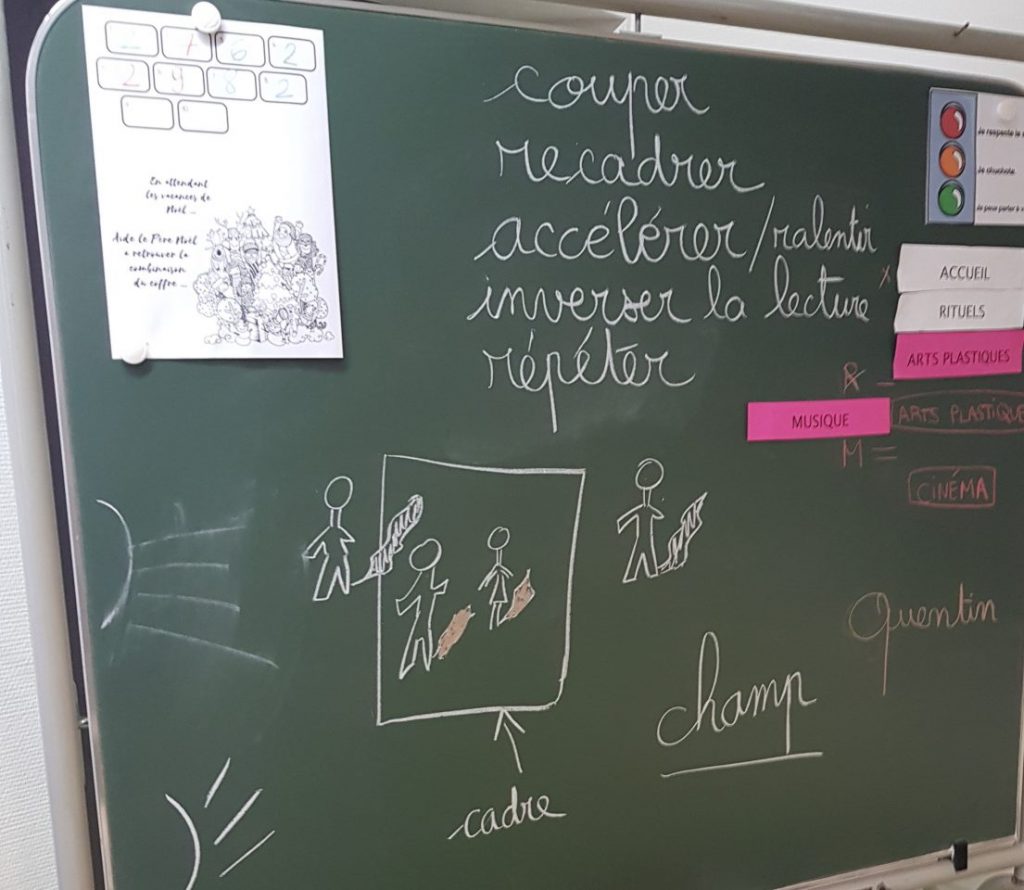 2 1 6 2
2 9 8 2
En attendant
les vacances de
Noël ...
Aide le Père Noël
a retrouver la
combinaison
du coffre ...
couper
recadrer
accélérer/ralentir
inverser la lecture
répéter
Je respecte le
Je chuchote.
Je peux parler à
ACCUEIL
RITUELS
ARTS PLASTIQUES
MUSIQUE
ARTS PLASTIQUE
M =
CINÉMA
Quentin
champ
cadre